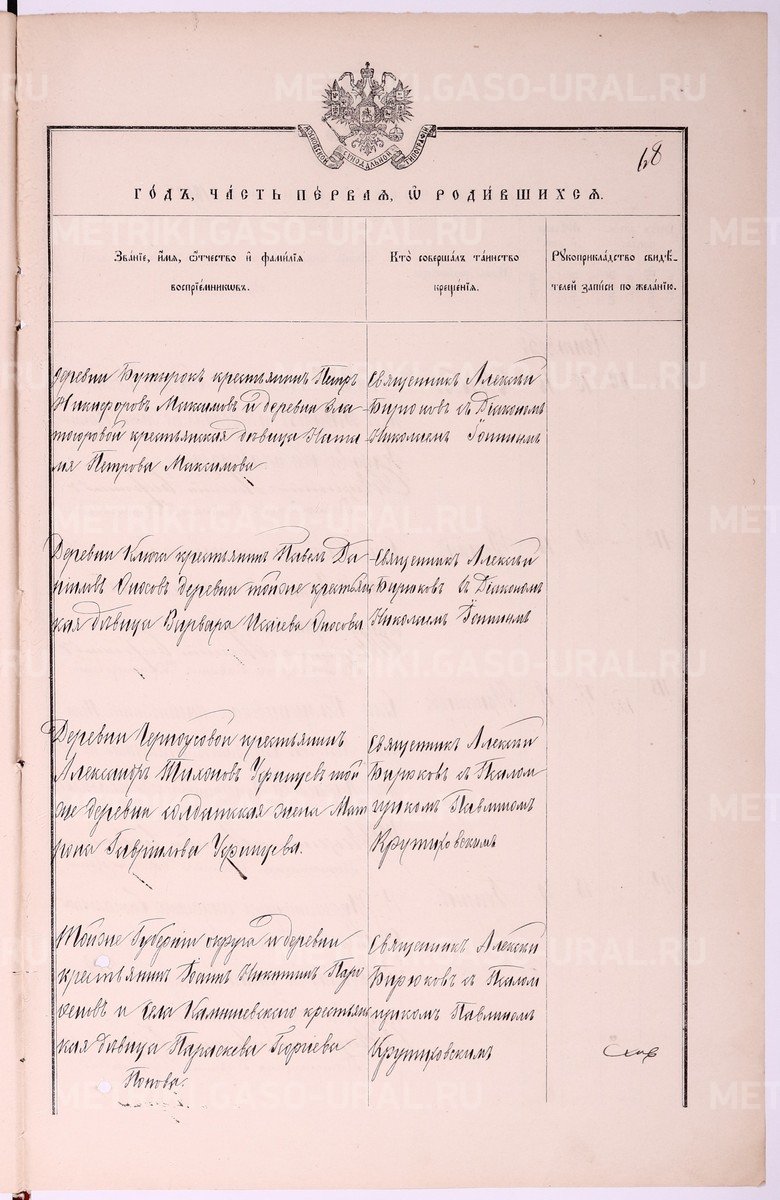 METRIKI.GASO-URAL.RU
СѴНОДАЛЬНОЙ ТИПОГРАФІИ
68
ГО́ДЪ, ЧА́СТЬ ПЕ́РВАѦ, Ѿ РОДИ́ВШИХСѦ.
Зва́нїе, и́мѧ, ѻ́тчество и҆ фамі́лїѧ
воспрїе́мниковъ.
Кто̀ соверша́лъ та́инство
креще́нїѧ.
Рꙋкоприкла́дство свидѣ́-
телей за́писи по жела́нїю.
деревни Бутырокъ крестьянинъ Петръ
Никифоровъ Максимовъ и деревни Зла-
тогоровой крестьянская дѣвица Ната-
лия Петрова Максимова
Священникъ Алексѣй
Бирюковъ съ Діакономъ
Николаемъ
Деревни Ключа крестьянинъ Павелъ Да-
ниловъ Опосовъ деревни тойже крестьян-
ская дѣвица Варвара Исаева Опосова
Священникъ Алексѣй
Бирюковъ съ Діакономъ
Николаемъ
Деревни Черноусовой крестьянинъ
Александръ Тихоновъ той
же деревни солдатская жена Мат
рона Гавриілова
Священникъ Алексѣй
Бирюковъ съ Псалом-
щикомъ Павлиномъ
Крутиховскимъ
Тойже Губерніи округа и деревни
крестьянинъ Іоаннъ Никитинъ Пар-
феновъ и села Камышевскаго крестьян
ская дѣвица Параскева Георгіева
Попова.
Священникъ Алексѣй
Бирюковъ съ Псалом
щикомъ Павлиномъ
Крутиховскимъ